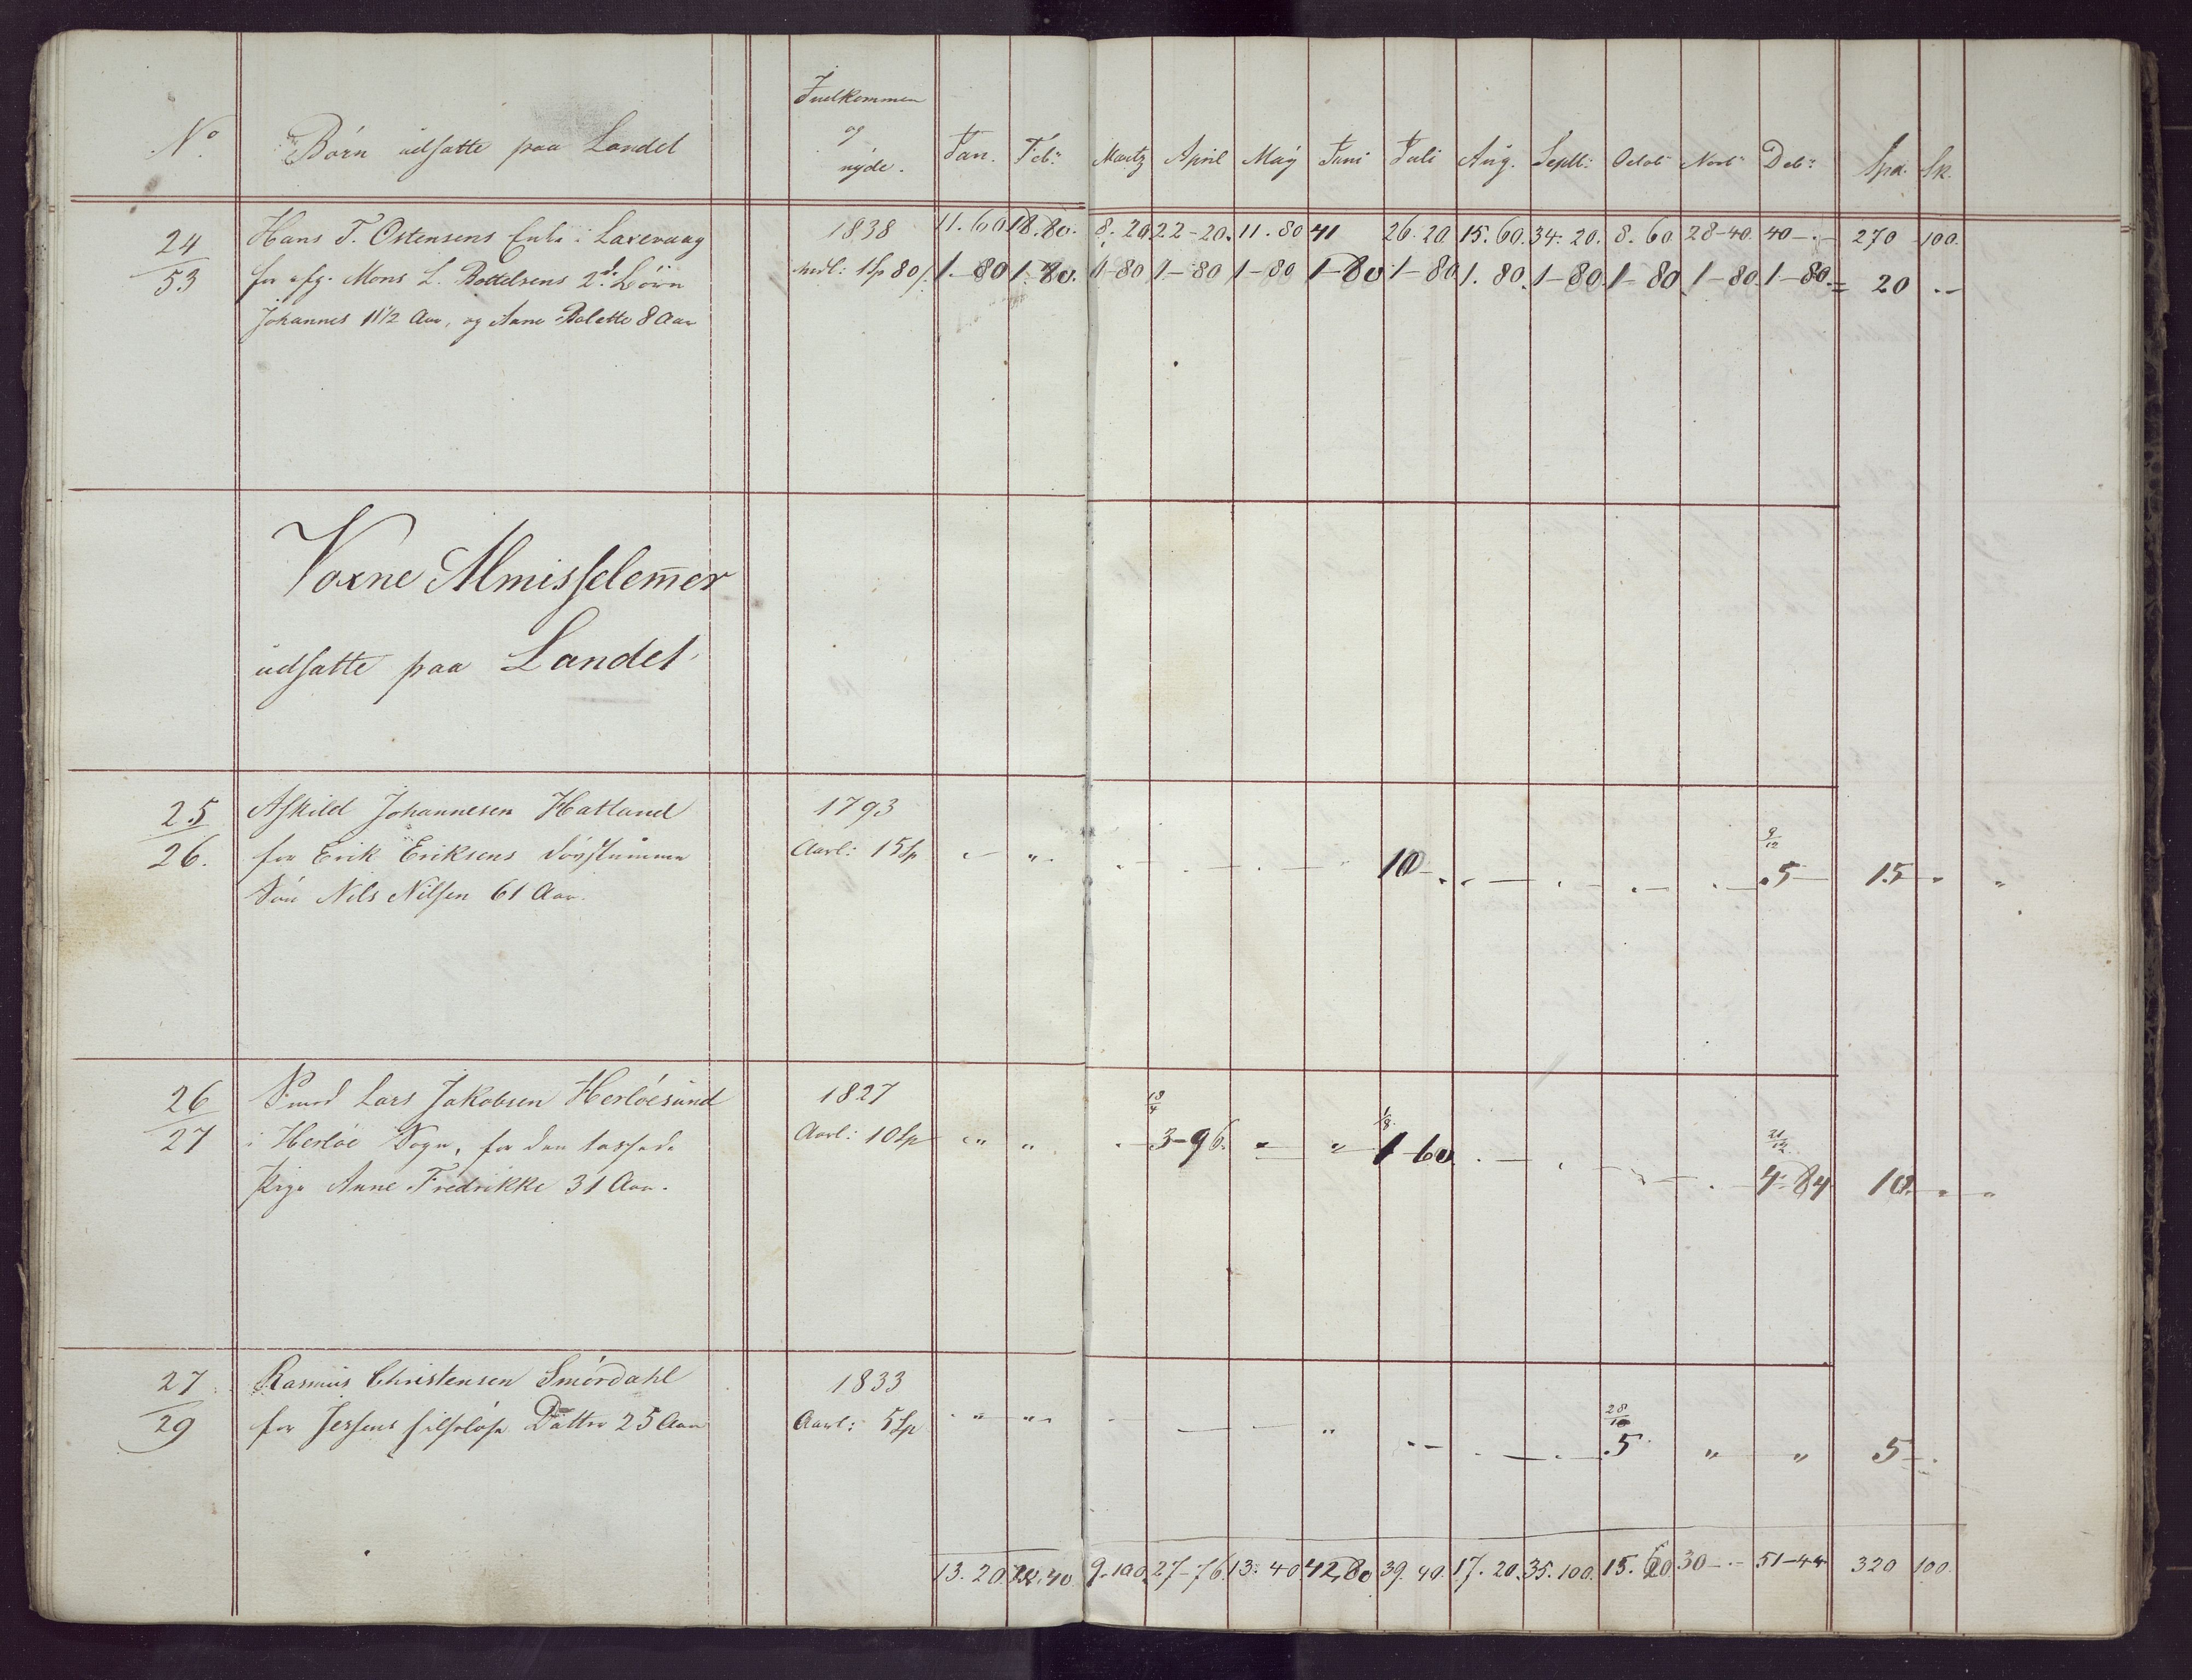 Indkommen
og
nyde.
No Börn udsatte paa Landet
Jan. Feb: Martz April May Juni Juli Aug. Septb: Octob: Novb: Deb: Spd. Sk.
11.60 18.80. 8.20 22-20. 11.80 41 26.20 15.60. 34.20. 8.60 28-40. 40-.- 270 100.
24/53 Hans T. Ostensens Enke i Laxevaag 1838
for afg. Mons L. Bottelsens 2de Börn Mdl: 1Sp 80/ 1-80 1-80. 1-80 1-80 1-80 1-80 1-80 1.80. 1-80. 1-80 1-80. 1-80. = 20 .-
Johannes 11 1/2 Aar, og Anne Bolette 8 Aar
Voxne Almisselem̄er
udsatte paa Landet
25/26. Askild Johannesen Hatland 1793
for Erik Eriksens døvstumme Aarl: 15Sp 10 9/12 5 15 " "
Sön Nils Nilsen 61 Aar.
26/27 Lars Jakobsen Herlöesund 1827
i Herlöe Sogn, for den tossede Aarl: 10Sp 18/4 3-96. 1/8 1-60 21/12 4-84 10. " "
Pige Anne Fredrikke 31 Aar.
27/29 Rasmus Christensen Smördahl 1833
for Jessens Datter 25 Aar Aarl: 5Sp 28/10 5 " " 5-.
13.20 22.40 9.100. 27-76. 13.40. 42,80 39.40. 17.20. 35.100. 15.60. 30-.- 51-44 320 100.